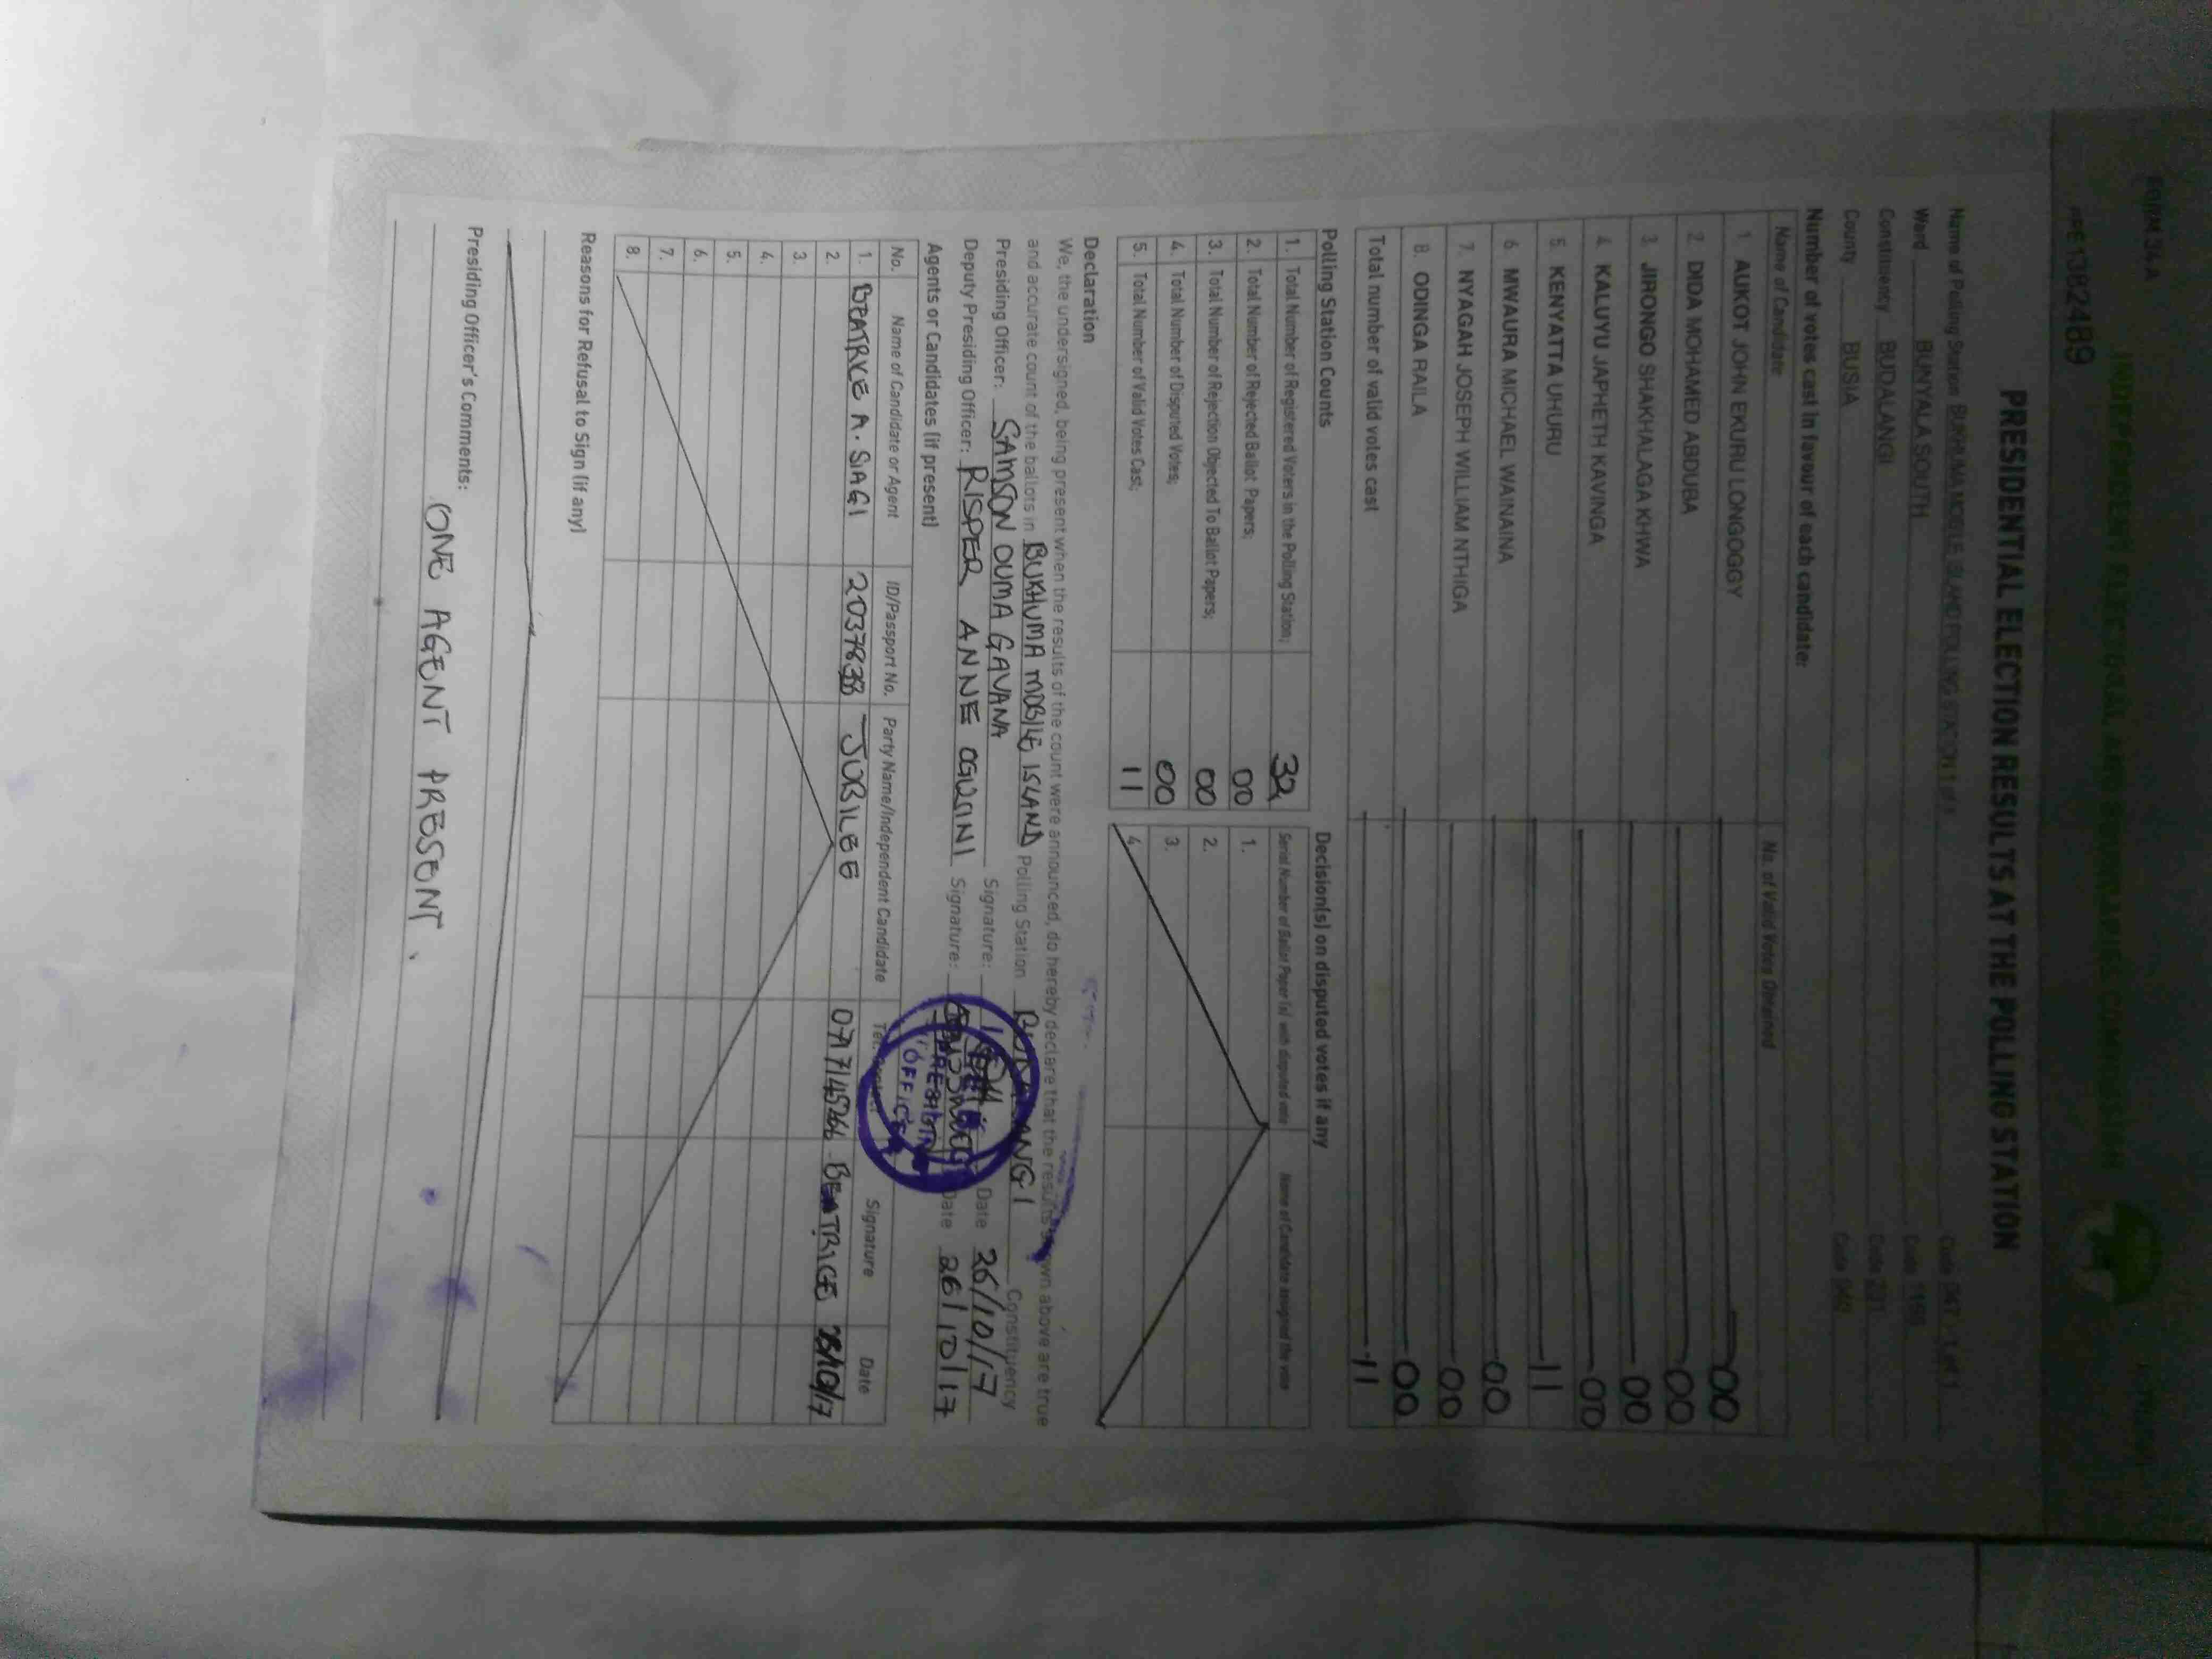 FORM 34A
INDEPENDENT ELECTORAL AND BOUNDARIES COMMISSION
PRE1382489
PRESIDENTIAL ELECTION RESULTS AT THE POLLING STATION
Name of Polling Station BUKHUMA MOBILE ISLAND POLLING STATION 1 of 1 Code 067 1 of 1
Ward BUNYALA SOUTH Code
Constituency BUDALANGI Code 231
County BUSIA Code 040
Number of votes cast in favour of each candidate:
Name of Candidate No. of Valid Votes Obtained
1. AUKOT JOHN EKURU LONGOGGY 00
2. DIDA MOHAMED ABDUBA 00
3. JIRONGO SHAKHALAGA KHWA 00
4. KALUYU JAPHETH KAVINGA 00
5. KENYATTA UHURU 11
6. MWAURA MICHAEL WAINAINA 00
7. NYAGAH JOSEPH WILLIAM NTHIGA 00
8. ODINGA RAILA 00
Total number of valid votes cast 11
Polling Station Counts
1. Total Number of Registered Voters in the Polling Station; 32
2. Total Number of Rejected Ballot Papers; 00
3. Total Number of Rejection Objected To Ballot Papers; 00
4. Total Number of Disputed Votes; 00
5. Total Number of Valid Votes Cast; 11
Decision(s) on disputed votes if any
Serial Number of Ballot Paper (s) with disputed vote Name of Candidate assigned the vote
1.
2.
3.
4.
Declaration
We, the undersigned, being present when the results of the count were announced, do hereby declare that the results shown above are true
and accurate count of the ballots in BUKHUMA MOBILE ISLAND Polling Station BUDALANGI Constituency
Presiding Officer: SAMSON OUMA GAVANA Signature: Date 26/10/17
Deputy Presiding Officer: RISPER ANNE OGWINI Signature: Date 26/10/17
PRESIDING
OFFICER
Agents or Candidates (if present)
No. Name of Candidate or Agent ID/Passport No. Party Name/Independent Candidate Tel. Signature Date
1. BEATRICE A. SIAGI JUBILEE BEATRICE 26/10/17
2.
3.
4.
5.
6.
7.
8.
Reasons for Refusal to Sign (if any)
Presiding Officer's Comments:
ONE AGENT PRESENT.